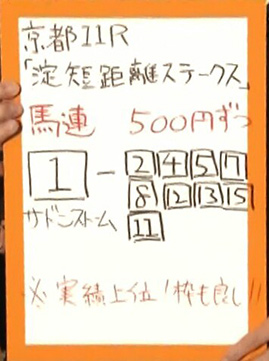 京都11R
「淀短距離ステークス」
馬連 500円ずつ
1 - 2 4 5 7
8 12 13 15
サドンストーム 11
※実績上位!枠も良し!!